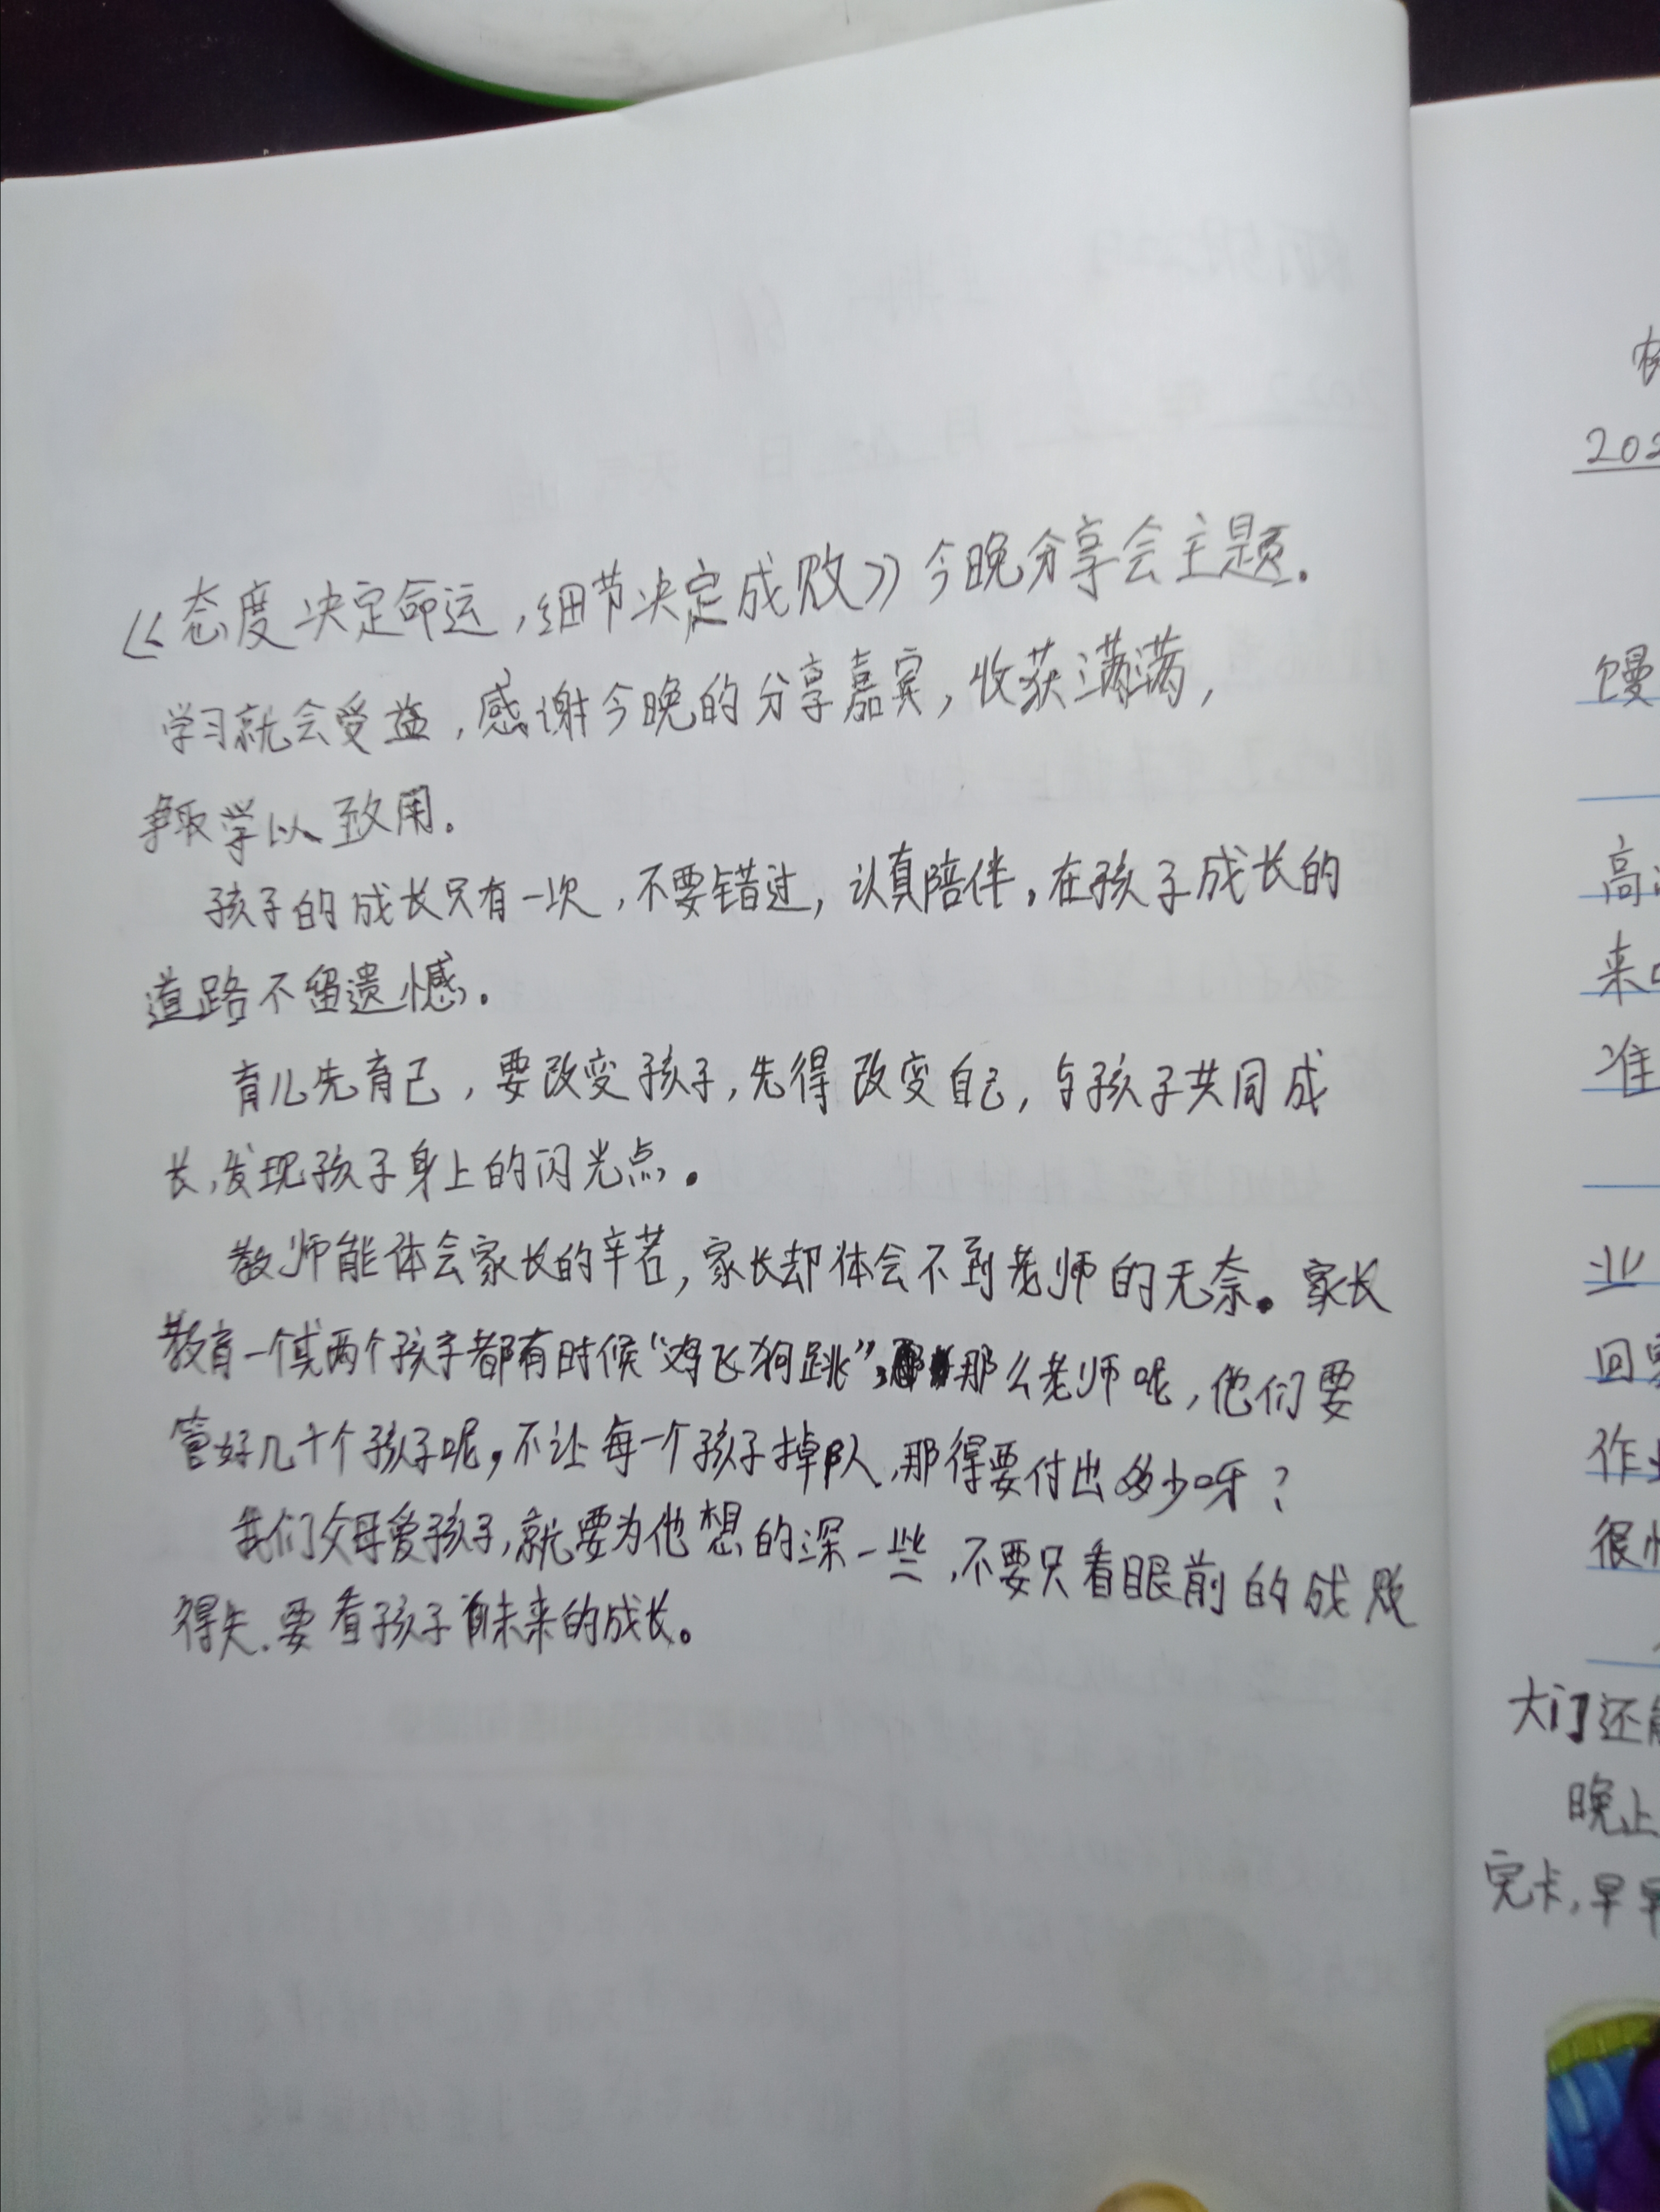 《态度决定命运，细节决定成败》今晚分享会主题.
学习就会受益，感谢今晚的分享嘉宾，收获满满，
争取学以致用。
孩子的成长只有一次，不要错过，认真陪伴。在孩子成长的
道路不留遗憾。
育儿先育己，要改变孩子，先得改变自己，与孩子共同成
长，发现孩子身上的闪光点。
教师能体会家长的辛苦，家长却体会不到老师的无奈。家长
教育一个或两个孩子都有时候“鸡飞狗跳”，那么老师呢，他们要
管好几十个孩子呢，不让每一个孩子掉队，那得要付出多少呀？
我们父母爱孩子，就要为他想的深一些，不要只看眼前的成败
得失.要看孩子未来的成长。
202
馒
高
来
准
业
回
作
很
大门还
晚上
完卡，早